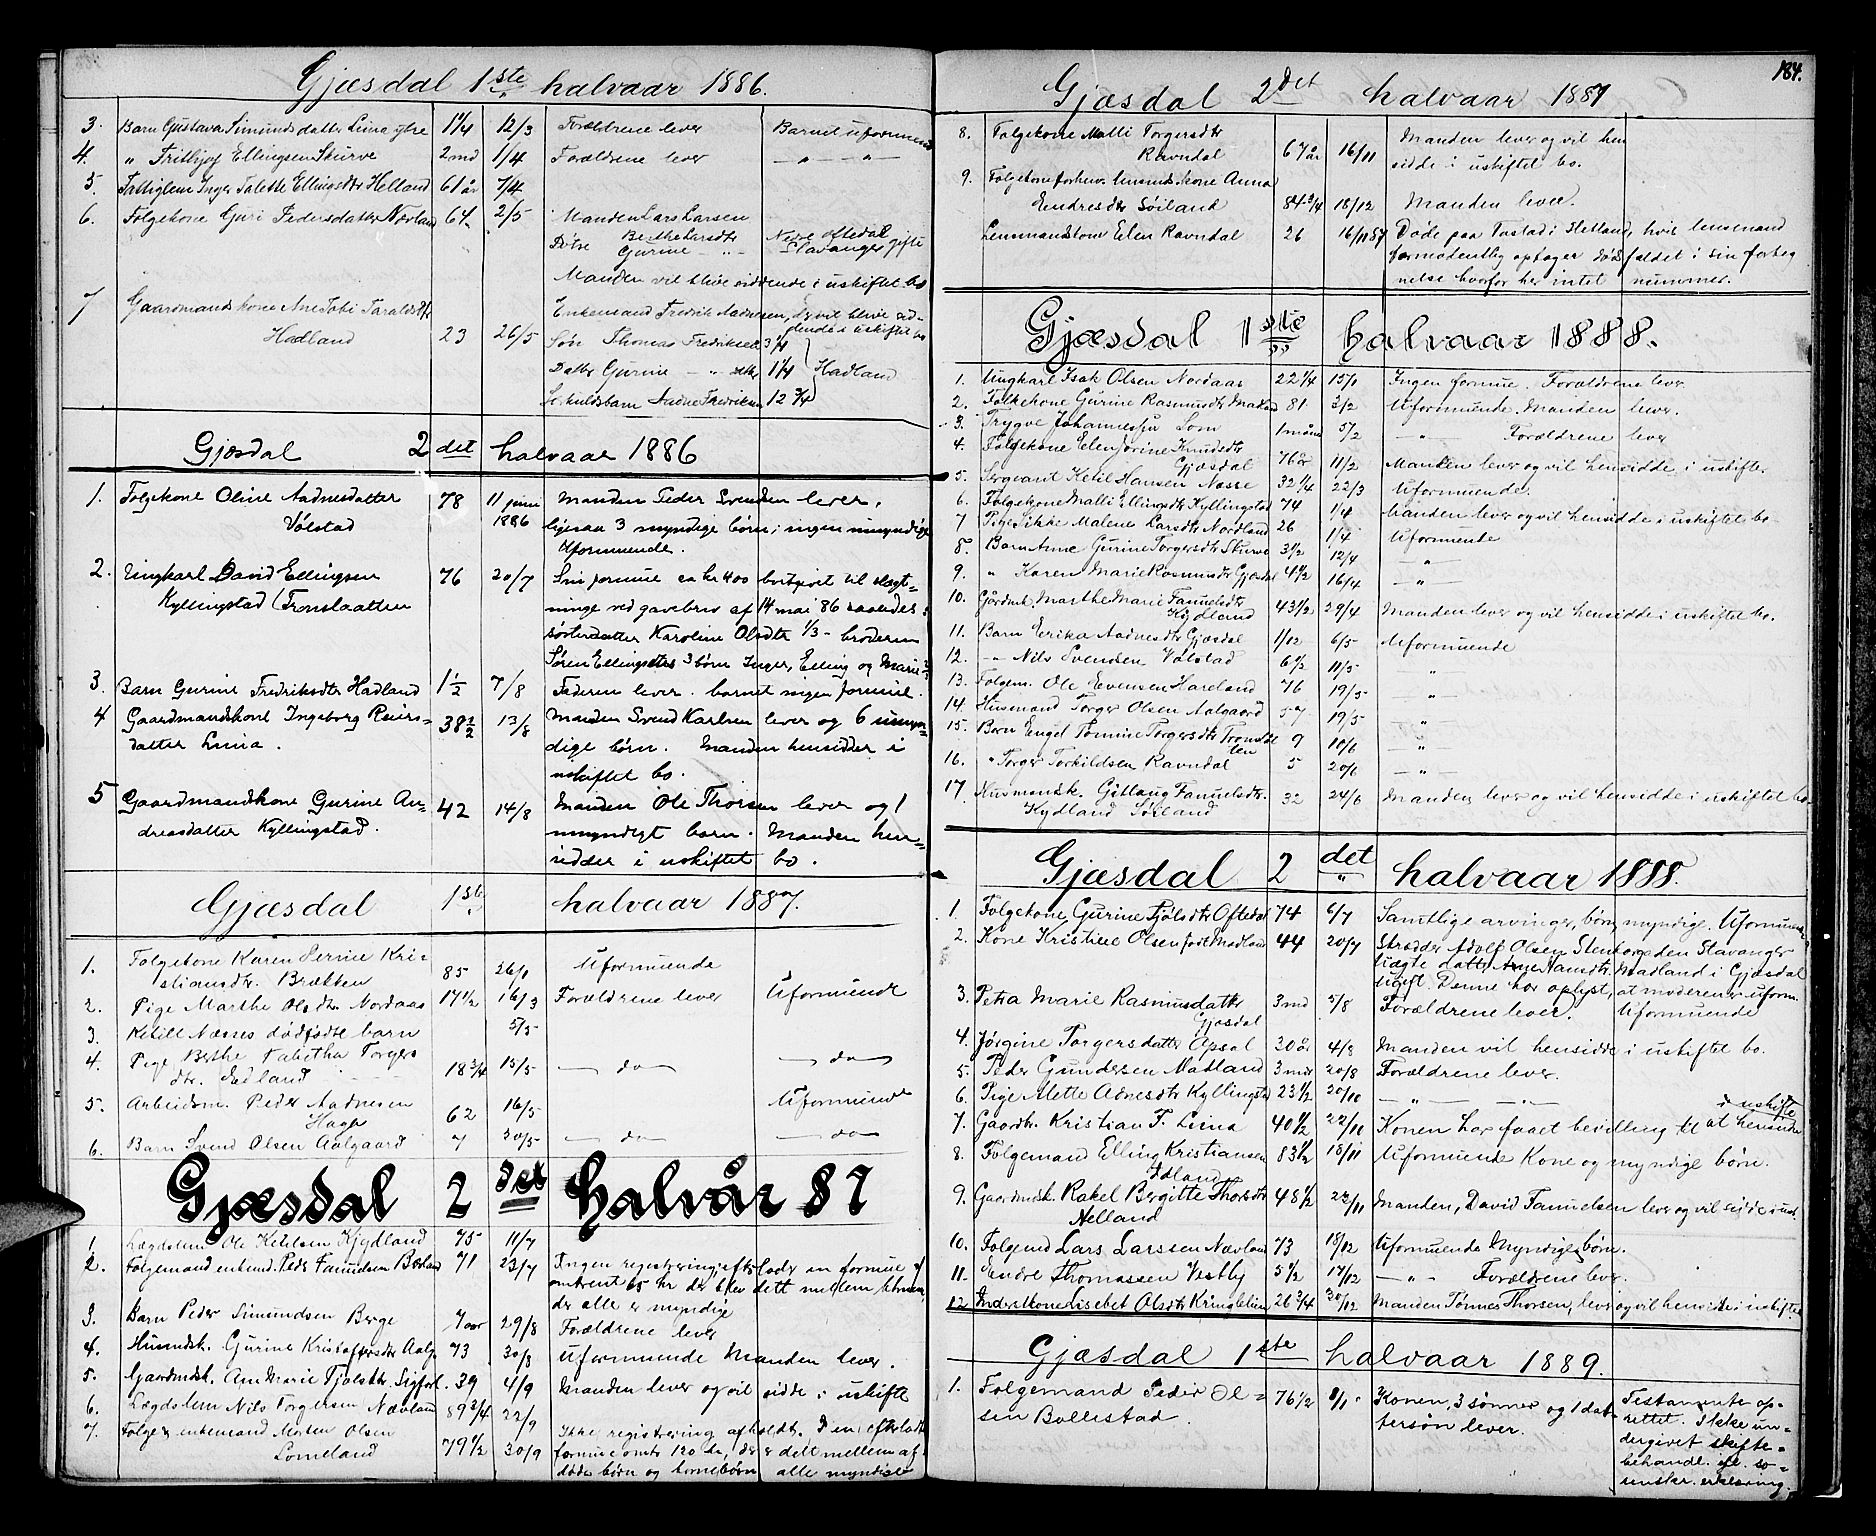 Gjæsdal 1ste halvaar 1886.
3. Barn Gustava Simundsdatter Lima ytre 1 1/4 12/3 Forældrene lever Barnet uformuend
4. " Frithjof Ellingsen Skurve 2 md 1/4 Forældrene lever — " — "
5. Fattiglem Inger Talette Ellingsdtr Helland 61 år 7/4
6. Folgekone Guri Pedersdatter Nævland 64 2/5 Manden Lars Larsen
Døtre Berthe Larsdtr Nedre Oftedal
Gurine — " — Stavanger gifte
Manden vil blive siddende i uskiftet bo
7 Gaardmandskone Ane Tobi Taraldsdtr Enkemand Fredrik Aadnesen, Og vil blive sid-
Hadland 23 26/5 dende i uskiftet bo
Søn Thomas Fredriksen 3 1/4
Datter Gurine — " — datter 1 1/4 Hadland
Aadne Fredriksen 12 3/4
Gjæsdal 2det halvaar 1886
1. Folgekone Oline Aadnesdatter 78 11 juni Manden Peder Svendsen lever,
Vølstad 1886 ligesaa 3 myndige børn; ingen umyndige
Uformuende.
2. Ungkarl David Ellingsen 76 20/7 Sin formue ca kr 400 bortgivet til slægt-
Kyllingstad (Tronslaatten ninge ved gavebrev af 14 mai 86 saaledes:
søsterdatter Karoline Olsdtr 1/3 - broderen
Søren Ellingsens 3 børn Inger, Elling og Marie
3. Barn Gurine Fredriksdtr Hadland 1 1/2 7/8 Faderen lever. barnet ingen formue.
4 Gaardmandskone Ingeborg Reiers- 38 1/2 13/8 Manden Svend Karlsen lever og 6 umyn-
datter Lima. dige børn. Manden hensidder i
uskiftet bo.
5 Gaardmandskone Gurine An- 42 14/8 Manden Ole Thorsen lever og 1
dreasdatter Kyllingstad. umyndigt barn. Manden hen-
sidder i uskiftet bo.
Gjæsdal 1ste halvaar 1887.
1. Folgekone Karen Serine Kri-
stiansdtr. Brækken 85 26/1 Uformuende
2. Pige Marthe Olsdtr. Nordaas 17 1/2 16/3 Forældrene lever Uformuende
3. Ketill Næsses dødfødte barn 5/5
4. Pige Berthe Tabitha Torgers
dtr. Sedland 18 3/4 15/5 — do — — do —
5. Arbeidsm. Peder Aadnesen
Haga 62 16/5 Uformuende
6. Barn Svend Olsen Aalgaard 7 30/5 — do — — do —
Gjæsdal 2det halvår 87
1. Lægdslem Ole Ketilsen Kydland 75 11/7
2. Folgemand enkemd. Peder Fanuelsen 71 23/7 Ingen registrering, efterlader en formue af
omtrent 65 kr der blev delt mellem børnene,
der alle er myndige
3. Barn Peder Simundsen Berge 7 aar 29/8 Forældrene lever
4. Husmdsk. Gurine Kristofersdtr Aalg. 73 30/8 Uformuende Manden lever.
5. Gaardmdsk. Ane Marie Tjølsdtr. 39 4/9 Manden lever og vil sidde i uskifte
6. Lægdslem Nils Torgersen Nævland 89 3/4 22/9
7. Folge & enkemand Morten Olsen Ikke registrering afholdt. Den efterladte
Lomeland 79 1/2 30/9 formue omtr 120 kr, der er delt mellem af-
døde børn og børnebørn alle myndige
184.
Gjæsdal 2det halvaar 1887
8. Folgekone Malli Torgersdtr Manden lever og vil hen
Ravndal 67 år 16/11 sidde i uskiftet bo.
9. Folgekone forhenv. lensmdskone Anna
Endresdtr Søiland 84 3/4 18/12 Manden lever.
Lensmand Tom Elen Ravndal 26 16/11 87 Døde paa Tastad i Hetland, hvis lensmand
formodentlig optager dødsfaldet i sin forteg
nelse hvorfor her intet nummer.
Gjæsdal 1ste halvaar 1888.
1. Ungkarl Isak Olsen Nordaas 22 1/4 15/1 Ingen formue. Forældrene lever
2. Folkekone Gurine Rasmusdtr Madland 81 3/2 Uformuende. Manden lever.
3. Trygve Johannessen Lom 1 måned 5/2 — " Forældrene lever
4. Folgekone Elen Jorine Knudsdtr
Gjæsdal 76 år 11/2 Manden lever og vil hensidde i uskifte.
5. Sergeant Ketil Hansen Næsse 32 1/4 22/3 Uformuende.
6. Folgekone Malli Ellingsdtr Kyllingstad 74 1/4 Manden lever og vil hensidde i uskiftet bo.
7 Pige Sikke Malene Larsdtr Nordland 26 1/4 Uformuende
8. Barn Anne Gurine Torgersdtr Skurve 3 1/2 12/4 — " —
9. " Karen Marie Rasmusdtr Gjæsdal 4 1/2 16/4 — " —
10. Gårdmk. Marthe Marie Fanuelsdtr
Kydland 43 1/2 29/4 Manden lever og vil hensidde i uskiftet bo.
11. Barn Erika Aadnesdtr Gjæsdal 1/12 6/5 Uformuende
12. — " — Nils Svendsen Vølstad 6 1/2 11/5 "
13. Folgem. Ole Evensen Hareland 76 19/5 — " —
14. Husmand Torger Olsen Aalgaard 57 19/5 "
15. Barn Engel Tomine Torgersdtr Tronslåt
ten 9 10/6 — " —
16. " Torger Torkildsen Ravndal 5 20/6 — " —
17 Husmandsk. Gitlaug Fanuelsdtr. 32 24/6 Manden lever og vil hensidde i uskiftet bo.
Kydland Søiland
Gjæsdal 2det halvaar 1888.
1. Folgekone Gurine Tjølsdtr Oftedal 74 6/7 Samtlige arvinger, børn, myndige. Uformuende
2. Kone Kristine Olsen født Madland 44 20/7 Strædder Adolf Olsen Stenhorgaden Stavanger
Uægte datter Ane Hansdtr. Madland i Gjæsdal
Ugift. Denne har oplyst, at moderen er uform.
3. Petra Marie Rasmusdatter 3 md 5/8 Forældrene lever. Uformuende
Gjæsdal
4. Jørgine Torgersdatter Apsal 30 år 4/8 Manden vil hensidde i uskiftet bo.
5. Peder Gundersen Madland 3 mdr 20/8 Forældrene lever.
6. Pige Alette Adnesdtr Kyllingstad 23 1/2 20/10 — " — — " —
7. Gaardbr. Kristian F. Lima 40 1/2 22/10 Konen har faaet bevilling til at hensidde
i uskifte
8. Folgemand Elling Kristiansen 83 1/2 18/11 Uformuende Kone og myndige børn.
Idland
9. Gaardmdsk. Rakel Bergitte Thorsdtr 48 1/2 22/11 Manden, David Fanuelsen lever og vil sidde i usk.
Helland
10. Folgemd Lars Larssen Nævland 73 18/12 Uformuende Myndige børn.
11. Endre Thomassen Vestly 5 1/2 17/12 — " — Forældrene lever.
12 Inderstkone Lisebet Olsdtr Kringlelien 26 3/4 30/12 Manden Tønnes Thorsen, lever og vil hensidde i uskifte.
Gjæsdal 1ste halvaar 1889.
1. Folgemand Peder Ol- 76 1/2 Konen, 3 sønner og 1 dat- Testamente op-
sen Bollestad. tersøn lever. rettet. Ikke un-
dergivet skifte-
behandl.
erklæring.